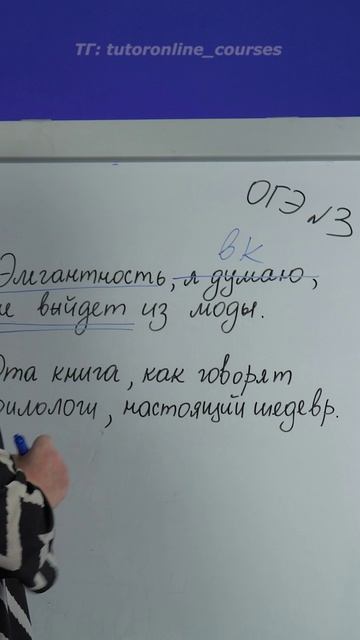 ТГ: tutoronline_courses
ОГЭ №3
вк
Элегантность, я думаю,
не выйдет из моды.
Эта книга, как говорят
филологи, настоящий шедевр.